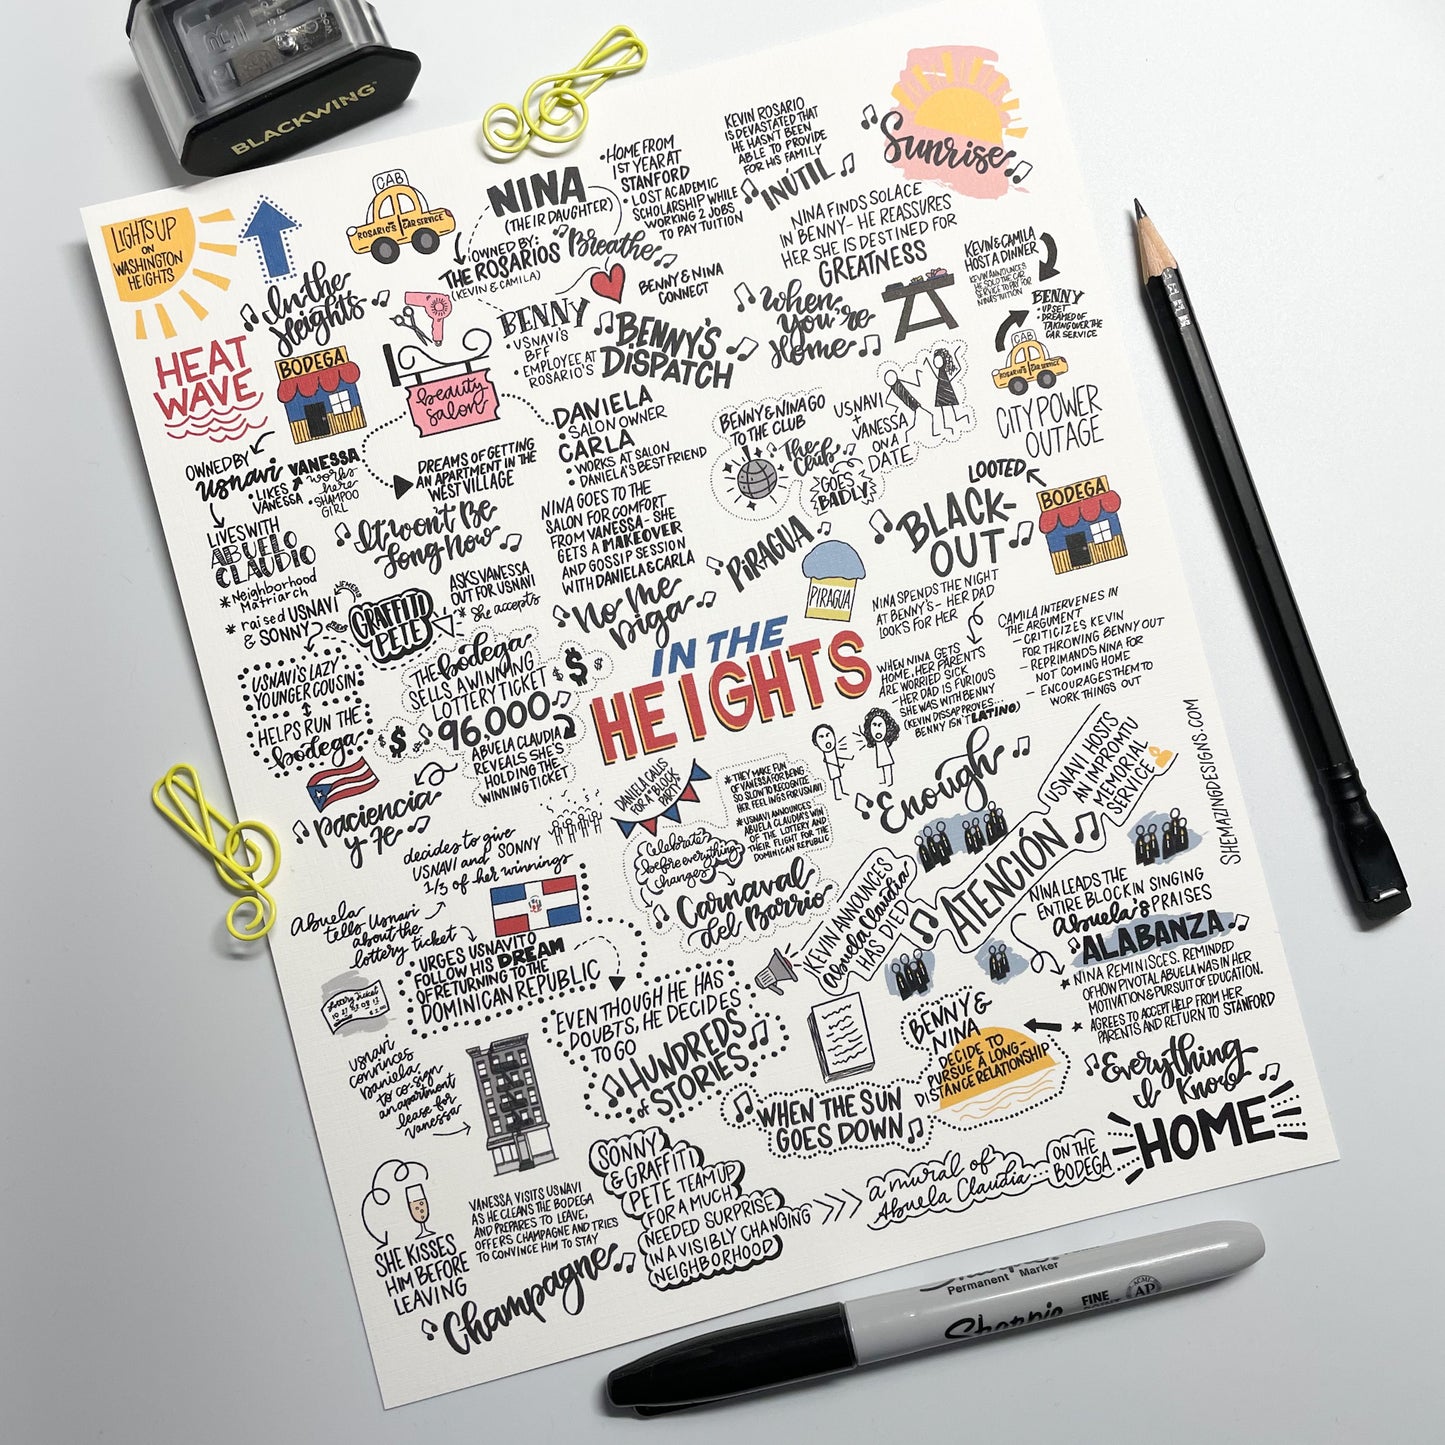 BLACKWING
LIGHTS UP
ON
WASHINGTON
HEIGHTS
In the
Heights
CAB
ROSARIO'S CAR SERVICE
NINA
(THEIR DAUGHTER)
• HOME FROM
1ST YEAR AT
STANFORD
• LOST ACADEMIC
SCHOLARSHIP WHILE
WORKING 2 JOBS
TO PAY TUITION
OWNED BY:
THE ROSARIOS
(KEVIN & CAMILA)
Breathe
KEVIN ROSARIO
IS DEVASTATED THAT
HE HASN'T BEEN
ABLE TO PROVIDE
FOR HIS FAMILY
INÚTIL
Sunrise
NINA FINDS SOLACE
IN BENNY - HE REASSURES
HER SHE IS DESTINED FOR
GREATNESS
BENNY
• USNAVI'S
BFF
• EMPLOYEE AT
ROSARIO'S
BENNY & NINA
CONNECT
BENNY'S
DISPATCH
When
You're
Home
KEVIN & CAMILA
HOST A DINNER
KEVIN ANNOUNCES
HE SOLD THE CAR
SERVICE TO PAY FOR
NINA'S TUITION
BENNY
• UPSET
• DREAMED OF
TAKING OVER THE
CAR SERVICE
CAB
ROSARIO'S CAR SERVICE
CITY POWER
OUTAGE
HEAT
WAVE
BODEGA
beauty
salon
OWNED BY
usnavi
• LIKES
VANESSA
VANESSA
works
here
• SHAMPOO
GIRL
DREAMS OF GETTING
AN APARTMENT IN THE
WEST VILLAGE
It Won't Be
Long Now
DANIELA
• SALON OWNER
CARLA
• WORKS AT SALON
• DANIELA'S BEST FRIEND
NINA GOES TO THE
SALON FOR COMFORT
FROM VANESSA - SHE
GETS A MAKEOVER
AND GOSSIP SESSION
WITH DANIELA & CARLA
No Me
Diga
BENNY & NINA GO
TO THE CLUB
The
Club
USNAVI
+
VANESSA
ON A
DATE
GOES
BADLY
PIRAGUA
PIRAGUA
BLACK-
OUT
LOOTED
BODEGA
LIVES WITH
ABUELO
CLAUDIO
* Neighborhood
Matriarch
* raised USNAVI
& SONNY
NEMESIS
GRAFFITI
PETE
ASKS VANESSA
OUT FOR USNAVI
* She accepts
USNAVI'S LAZY
YOUNGER COUSIN
HELPS RUN THE
bodega
THE bodega
SELLS A WINNING
LOTTERY TICKET
$ $ $
96,000
$ $ $
ABUELA CLAUDIA
REVEALS SHE'S
HOLDING THE
WINNING TICKET
IN THE
HEIGHTS
NINA SPENDS THE NIGHT
AT BENNY'S - HER DAD
LOOKS FOR HER
WHEN NINA GETS
HOME, HER PARENTS
ARE WORRIED SICK
- HER DAD IS FURIOUS
SHE WAS WITH BENNY
(KEVIN DISAPPROVES...
BENNY ISN'T LATINO)
CAMILA INTERVENES IN
THE ARGUMENT
- CRITICIZES KEVIN
FOR THROWING BENNY OUT
- REPRIMANDS NINA FOR
NOT COMING HOME
- ENCOURAGES THEM TO
WORK THINGS OUT
Enough
SHEMAZINGDESIGNS.COM
paciencia
y Fe
decides to give
USNAVI and SONNY
1/3 of her winnings
Abuela
tells Usnavi
about the
lottery ticket
URGES USNAVI TO
FOLLOW HIS DREAM
OF RETURNING TO THE
DOMINICAN REPUBLIC
Lottery Ticket
DANIELA CALLS
FOR A "BLOCK
PARTY"
* THEY MAKE FUN
OF VANESSA FOR BEING
SO SLOW TO RECOGNIZE
HER FEELINGS FOR USNAVI
* USNAVI ANNOUNCES
ABUELA CLAUDIA'S WIN
OF THE LOTTERY AND
THEIR FLIGHT FOR THE
DOMINICAN REPUBLIC
Celebrate
before everything
changes
Carnaval
del Barrio
USNAVI HOSTS
AN IMPROMTU
MEMORIAL
SERVICE
KEVIN ANNOUNCES
Abuela Claudia
HAS DIED
ATENCIÓN
NINA LEADS THE
ENTIRE BLOCK IN SINGING
Abuela's PRAISES
ALABANZA
* NINA REMINISCES. REMINDED
OF HOW PIVOTAL ABUELA WAS IN HER
MOTIVATION & PURSUIT OF EDUCATION.
* AGREES TO ACCEPT HELP FROM HER
PARENTS AND RETURN TO STANFORD
Everything
I Know
EVEN THOUGH HE HAS
DOUBTS, HE DECIDES
TO GO
HUNDREDS
of STORIES
BENNY &
NINA
DECIDE TO
PURSUE A LONG-
DISTANCE RELATIONSHIP
WHEN THE SUN
GOES DOWN
usnavi
convinces
Daniela
to co-sign
an apartment
lease for
vanessa
SHE KISSES
HIM BEFORE
LEAVING
VANESSA VISITS USNAVI
AS HE CLEANS THE BODEGA
AND PREPARES TO LEAVE,
OFFERS CHAMPAGNE AND TRIES
TO CONVINCE HIM TO STAY
Champagne
SONNY
& GRAFFITI
PETE TEAM UP
FOR A MUCH
NEEDED SURPRISE
IN A VISIBLY CHANGING
NEIGHBORHOOD
a mural of
Abuela Claudia...
ON THE
BODEGA
HOME
Permanent Marker
Sharpie
FINE
ACMI
AP